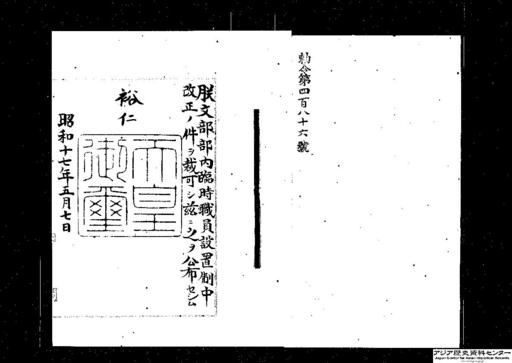 勅令第四百八十六號
朕文部部内臨時職員設置制中
改正ノ件ヲ裁可シ茲ニ之ヲ公布セシム
裕仁
天皇
御璽
昭和十七年五月七日
アジア歴史資料センター
Japan Center for Asian Historical Records